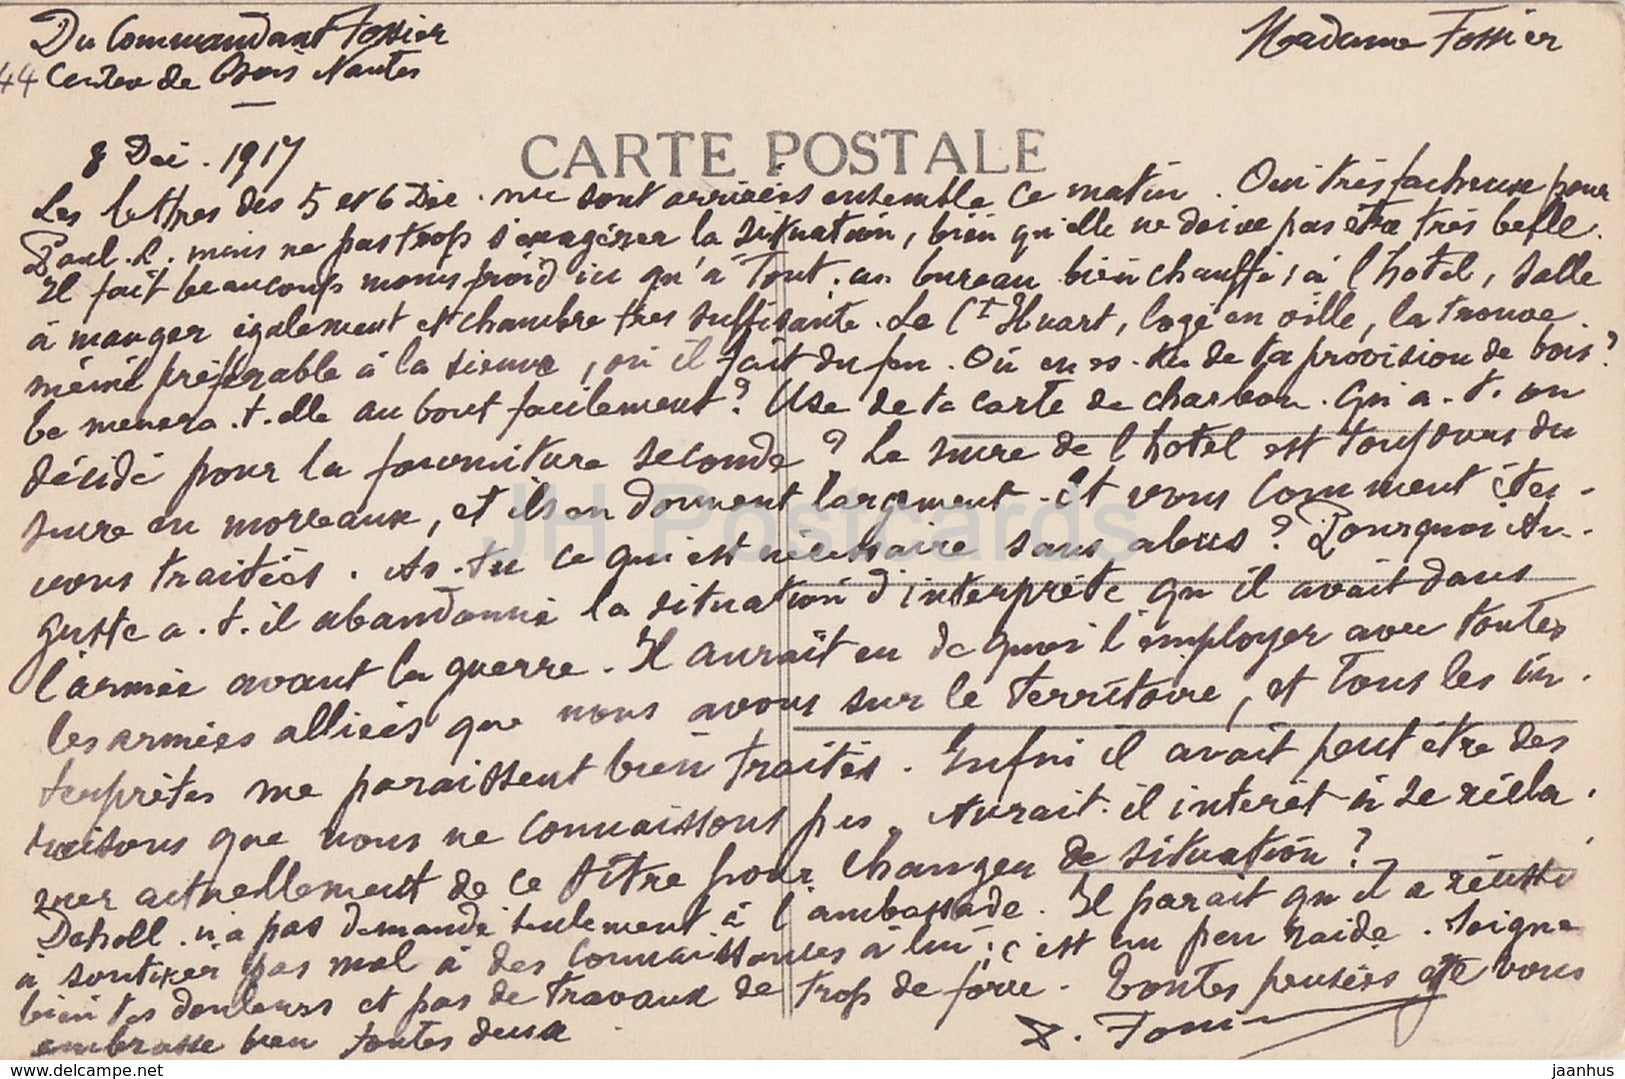 Du Commandant Fossier
Madame Fossier
44 Centre de Bois Nantes
8 Déc. 1917
CARTE POSTALE
Les lettres des 5 et 6 Déc. me sont arrivées ensemble ce matin. Oui très facheux pour
Paul. L. mais ne pas trop s'exagérer la situation, bien qu'elle ne doive pas être très belle.
Il fait beaucoup moins froid ici qu'à Toul. un bureau bien chauffé; à l'hotel, salle
à manger également et chambre très suffisante. Le Ct Huart, logé en ville, la trouve
même préférable à la sienne, où il fait du feu. Où en es-tu de ta provision de bois?
te menera-t-elle au bout facilement? Use de ta carte de charbon. Qu'a-t-on
décidé pour la fourniture seconde? Le sucre de l'hotel est toujours du
sucre en morceaux, et ils en donnent largement. Et vous comment êtes-
vous traités. As-tu ce qui est nécessaire sans abus? Pourquoi Au-
guste a-t-il abandonné la situation d'interprète qu'il avait dans
l'armée avant la guerre. Il aurait eu de quoi l'employer avec toutes
les armées alliées que nous avons sur le territoire, et tous les in-
terprètes me paraissent bien traités. Enfin il avait peut être des
raisons que nous ne connaissons pas. Aurait-il intérêt à se récla-
mer actuellement de ce titre pour changer de situation?
n'a pas demandé seulement à l'ambassade. Il parait qu'il a réussi
à soutirer pas mal à des connaissances à lui; c'est un peu raide. Soigne
bien tes douleurs et pas de travaux de trop de force. Toutes pensées et je vous
embrasse bien toutes deux
F. Fossier
JH Postcards
delcampe.net
jaanhus